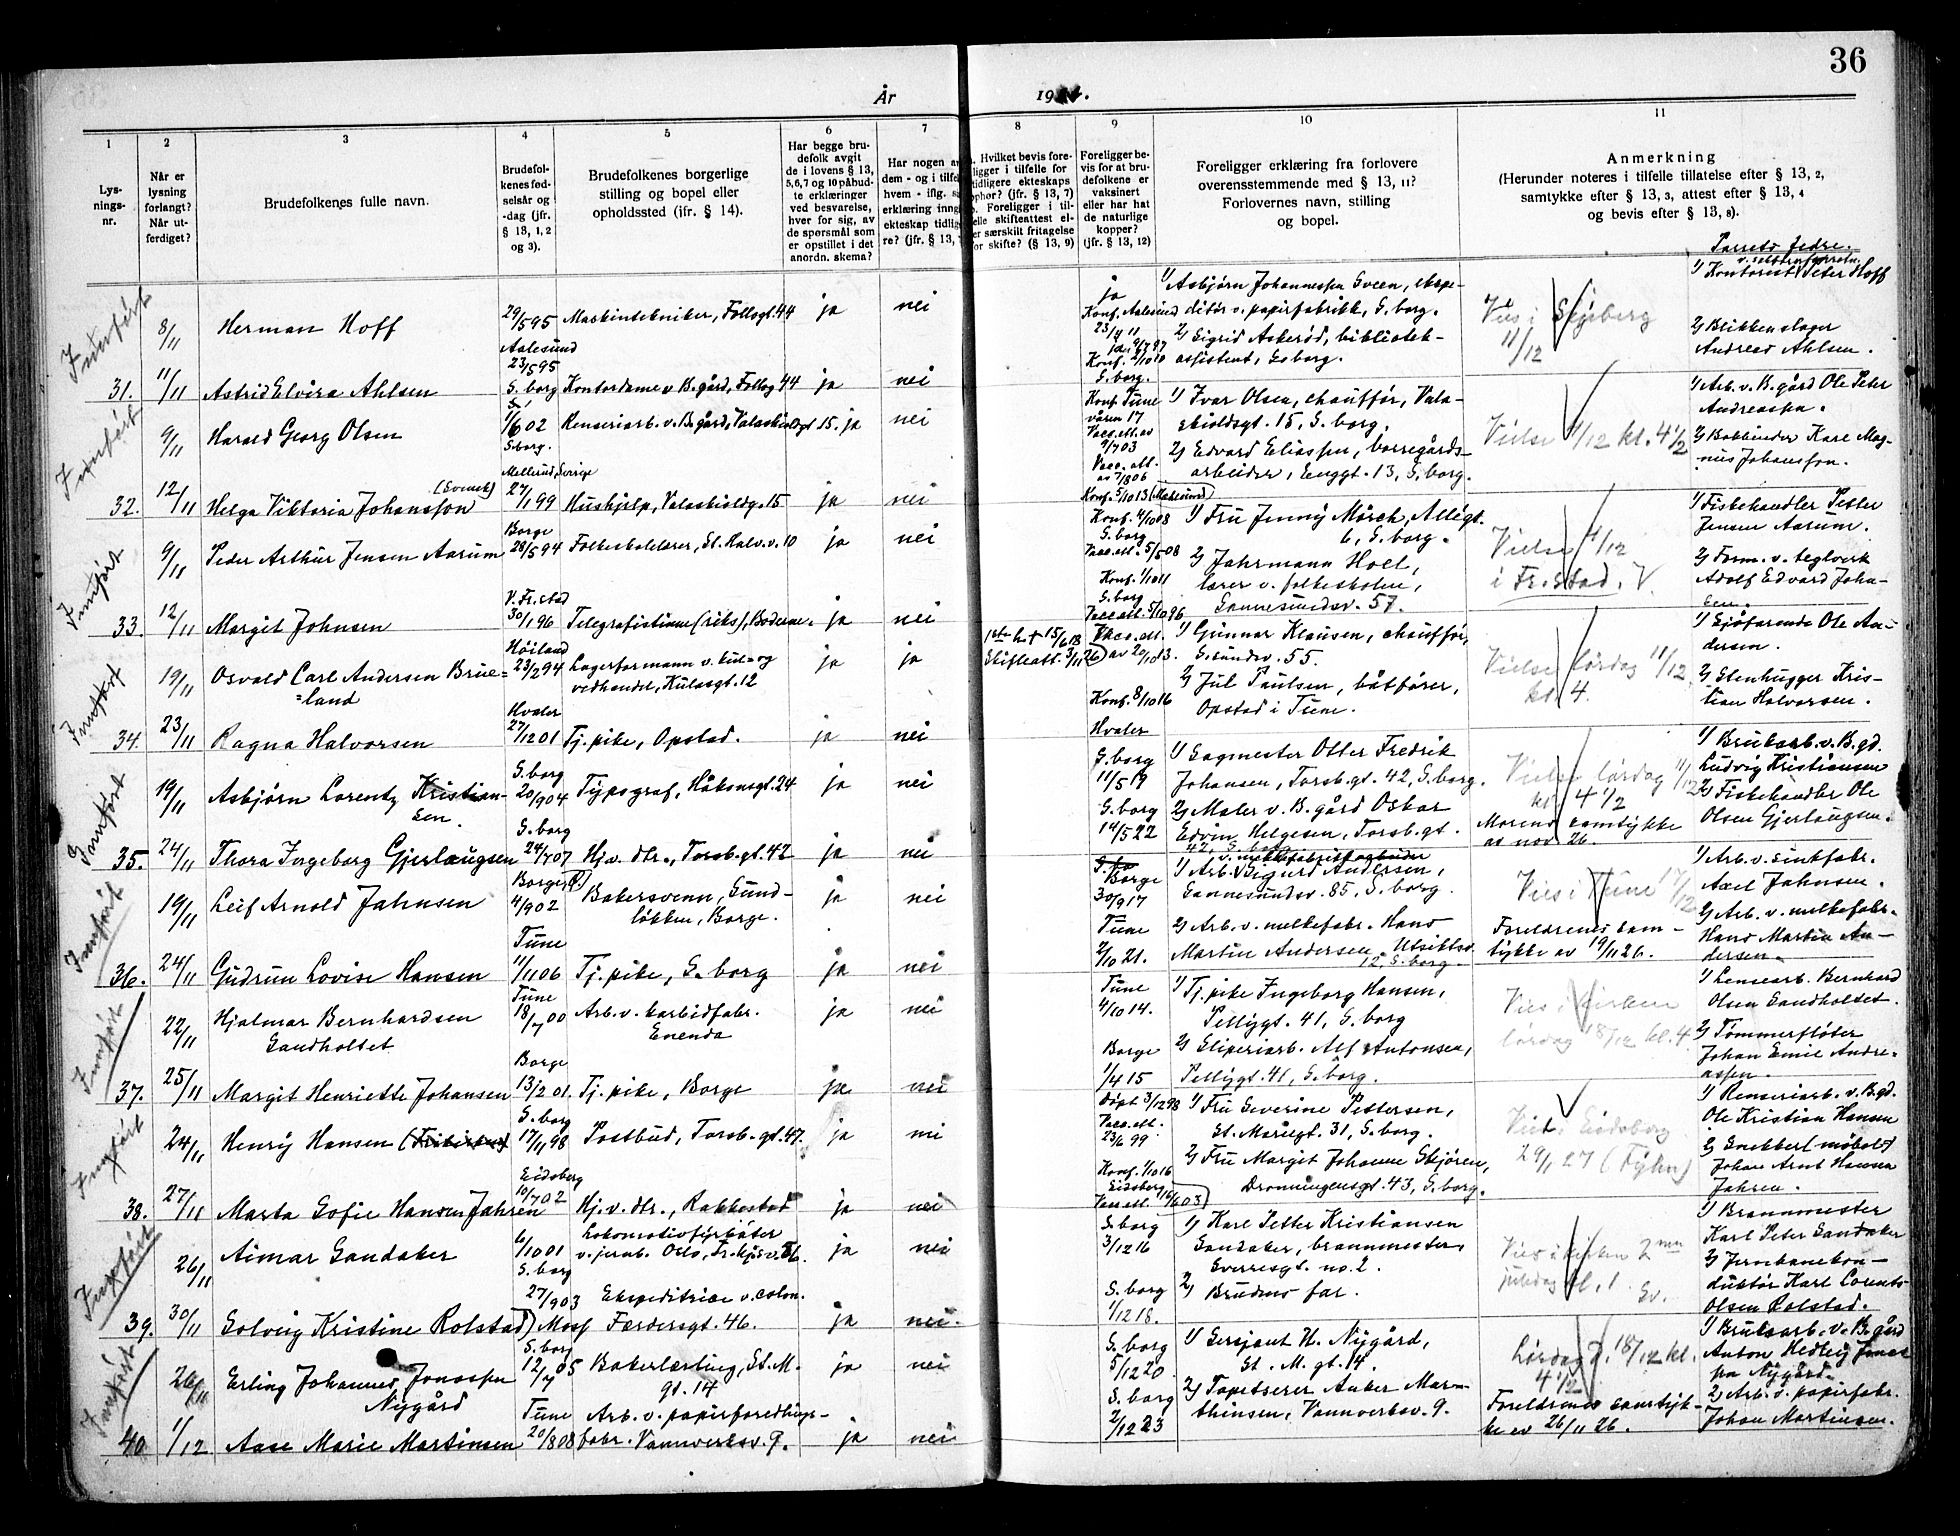 36
År 19
1 2 3 4 5 6 7 8 9 10 11
Lys-
nings-
nr.
Når er
lysning
forlangt?
Når ut-
ferdiget?
Brudefolkenes fulle navn.
Brudefol-
kenes fød-
selsår og
-dag (jfr.
§ 13, 1, 2
og 3).
Brudefolkenes borgerlige
stilling og bopel eller
opholdssted (jfr. § 14).
Har begge bru-
defolk avgit
de i lovens § 13,
5,6,7 og 10 påbud-
te erklæringer
ved besvarelse,
hver for sig, av
de spørsmål som
er opstillet i det
anordn. skema?
Har nogen a
dem - og i tilfel
hvem - iflg. s
erklæring inng
ekteskap tidlig
re? (jfr. § 13,
Hvilket bevis fore-
ligger i tilfelle for
tidligere ekteskaps
ophør? (jfr. § 13, 7)
Foreligger i til-
felle skifteattest el-
er særskilt fritagelse
for skifte? (§ 13, 9)
Foreligger be-
vis for at bru-
defolkene er
vaksinert
eller har hat
de naturlige
kopper?
(jfr. § 13, 12)
Foreligger erklæring fra forlovere
overensstemmende med § 13, 11?
Forlovernes navn, stilling
og bopel.
Anmerkning
(Herunder noteres i tilfelle tillatelse efter § 13, 2,
samtykke efter § 13, 3, attest efter § 13, 4
og bevis efter § 13, 8).
Parrets fedre.
Innført
8/11 Herman Hoff 29/5 95 Maskintekniker, Follogt. 44 ja nei
Aalesund
ja
Konf. Aalesund
1) Asbjørn Johannessen Sveen, ekspe-
ditør v. papirfabrikk, S.borg.
2) Sigrid Askerød, bibliotek-
assistent, S.borg.
Vies i Skjeberg
11/12
1) Kontorist Peter Hoff
2) Blikkenslager
Andreas Ahlsen.
31. 11/11 Astrid Elvira Ahlsen 23/5 95 S.borg Kontordame v. B.gård, Follog. 44 ja nei
S.borg.
Innført
9/11 Harald Georg Olsen 6 02 S.borg. Renseriarb. v. B.gård, Valaskioldgt 15. ja nei
Konf. Tune
våren 17
Vacc.att. av
7/03
1) Ivar Olsen, chauffør, Vala-
skioldsgt. 15, S.borg.
2) Edvard Eliassen, borregårds-
arbeider, Enggt. 13, S.borg.
Vielse 4/12 kl. 4 1/2
1) Arb. v. B.gård Ole Peter
Andreassen.
2) Bokbinder Karl Mag-
nus Johansson.
Mellerud, Sverige
(Svensk)
32. 12/11 Helga Viktoria Johansson 27/1 99 Hushjelp, Valaskioldg. 15 ja nei
Vacc. att.
av 7/8 06
Konf. 5/10 13
Innført
Borge
9/11 Peder Arthur Jensen Aarum 28/5 94 Folkeskolelærer, St. Halv. v. 10 ja nei
Konf. 4/10 08
S.borg
Vacc.att. 5/5 08
1) Fru Jenny Mørch, Allégt.
6, S.borg.
2) Jahrmann Hoel,
lærer v. folkeskolen,
Sannesundsv. 57.
Vielse 4/12
i Fr.stad. V
1) Fiskehandler Petter
Jensen Aarum.
2) Form. v. teglverk
Adolf Edvard Joha-
sen.
V. Fr.stad
33. 12/11 Margit Johnsen 30/1 96 Telegrafistinne (riks), Boderne. ja nei
Konf. 1/10 11
S.borg
Vacc.att. 5/10 96
Innført
Høiland
19/11 Osvald Carl Andersen Brue-
=land 23/2 94 Lagerformann v. kul- og
vedhandel, Kulasgt. 12 ja ja
15/6 18
Skifteatt. 3/11 26
Vacc. att.
av 20/10 13.
1) Gunnar Klausen, chauffør,
S.sundsv. 55.
2) Jul Paulsen, båtfører,
Opstad i Tune.
Vielse lørdag 11/12
kl 4.
1) Sjøfarende Ole An-
dersen.
2) Stenhugger Kris-
tian Halvorsen.
Hvaler
34. 23/11 Ragna Halvorsen 27/12 01 Tj.pike, Opstad. ja nei
Konf. 8/10 16
Hvaler
Innført
S.borg
19/11 Asbjørn Lorentz Kristian-
sen. 20/9 04 Typograf, Håkonsgt. 24 ja nei
S.borg
11/5 19
1) Sagmester Otter Fredrik
Johansen, Torsb.gt. 42, S.borg.
2) Maler v. B.gård Oskar
Edvin Helgesen, Torsb.gt.
42, S.borg
Vielse lørdag 11/12
kl 4 1/2
Morens samtykke
av nov 26.
1) Bruksarb. v. B.gd.
Ludvig Kristiansen
2) Fiskehandler Ole
Olsen Gjerlaugsen.
S.borg
35. 24/11 Thora Ingeborg Gjerlaugsen 24/7 07 Hj.v. dtr., Torsb.gt. 42 ja nei
S.borg
14/5 22
Innført
Borge
19/11 Leif Arnold Jahnsen 4/9 02 Bakersvenn, Sund-
løkken, Borge. ja nei
Borge
30/9 17
1) Arb. v. melkefabrikkarbeider Sigurd Andersen,
Sannesundsv. 85, S.borg.
2) Arb. v. melkefabr. Hans
Martin Andersen, Utsiktsv.
12, S.borg.
Vies i Tune 17/12
Foreldrenes sam-
tykke av 19/11 26.
1) Arb. v. sinkfabr.
Axel Jahnsen.
2) Arb. v. melkefabr.
Hans Martin An-
dersen.
Tune
36. 24/11 Gudrun Lovise Hansen 11/11 06 Tj.pike, S.borg ja nei
Tune
2/10 21.
Innført
Tune
22/11 Hjalmar Bernhardsen
Sandholtet 18/7 00 Arb. v. karbidfabr.
Enenda ja nei
Tune
4/10 14.
1) Tj.pike Ingeborg Hansen,
Pellygt. 41, S.borg
2) Sliperiarb. Alf Antonsen,
Pellygt. 41, S.borg.
Vies i kirken
lørdag 18/12 kl. 4
1) Lensearb. Bernhard
Olsen Sandholtet.
2) Tømmerfløter
Johan Emil Andre-
assen.
Borge
37. 25/11 Margit Henriette Johansen 13/2 01. Tj.pike, Borge ja nei
Borge
1/4 15
Innført
S.borg
24/11 Henry Hansen 17/11 98 Postbud, Torsb.gt. 47. ja nei
Døpt 3/12 98
Vacc.att.
23/6 99.
1) Fru Severine Pettersen,
St. Mariegt. 31, S.borg.
2) Fru Margit Johanne Skjøren,
Dronningensgt. 43, S.borg.
Viet i Eidsberg
29/1 27 (Fykn)
1) Renseriarb. v. B.gd.
Ole Kristian Hansen
2) Snekker (møbel)
Johan Arnt Hansen
Jahren.
Eidsberg
38. 27/11 Marta Sofie Hansen Jahren 10/7 02 Hj.v. dtr., Rakkestad ja nei
Konf. 1/10 16
Eidsberg
Vacc.att. 16/6 03
Innført
26/11 Aimar Sandaker 6/10 01
S.borg
Lokomotivfyrbøter
v. jernb. Oslo, Fr.kjsv. 56. ja nei
S.borg
3/12 16
1) Karl Petter Kristiansen
Sandaker, brannmester,
Sverresgt. no. 2.
2) Brudens far.
Vies i kirken 2nen
juledag kl. 1. Sv.
1) Brannmester
Karl Peter Sandaker
2) Jernbanekon-
duktør Karl Lorents
Olsen Rolstad.
39. 30/11 Solveig Kristine Rolstad 27/9 03 Moss Ekspeditrice v. colon.
Færdersgt. 46. ja nei.
S.borg
1/12 18.
Innført
S.borg
26/11 Erling Johannes Jonassen
Nygård 12/7 05 Bakerlærling, St. M.
gt. 14 ja nei
S.borg
5/12 20
1) Sersjant H. Nygård,
St. M. gt. 14.
2) Tapetserer Anker Mar-
thinsen, Vannverksv. 9.
Lørdag d. 18/12 kl.
4 1/2
Foreldrenes samtyk-
ke av 26/11 26.
1) Bruksarb. v. B.gård
Anton Hedley Jonas-
sen Nygård.
2) Arb. v. papirfabr.
Johan Martinsen.
Tune
40. 1/12 Aase Marie Martinsen 20/8 08 Arb. v. papirforedlings-
fabr. Vannverksv. 9. ja nei
S.borg
2/12 23